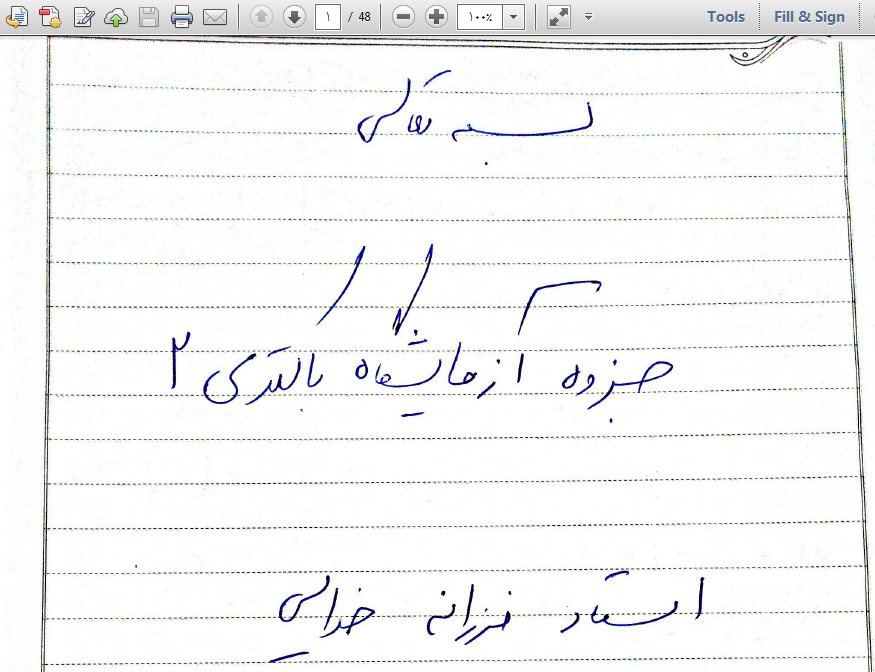 ۱ / 48 ۱۰۰٪ Tools Fill & Sign
بسمه تعالی
جزوه آزمایشگاه باکتری ۲
استاد فرزانه خدایی